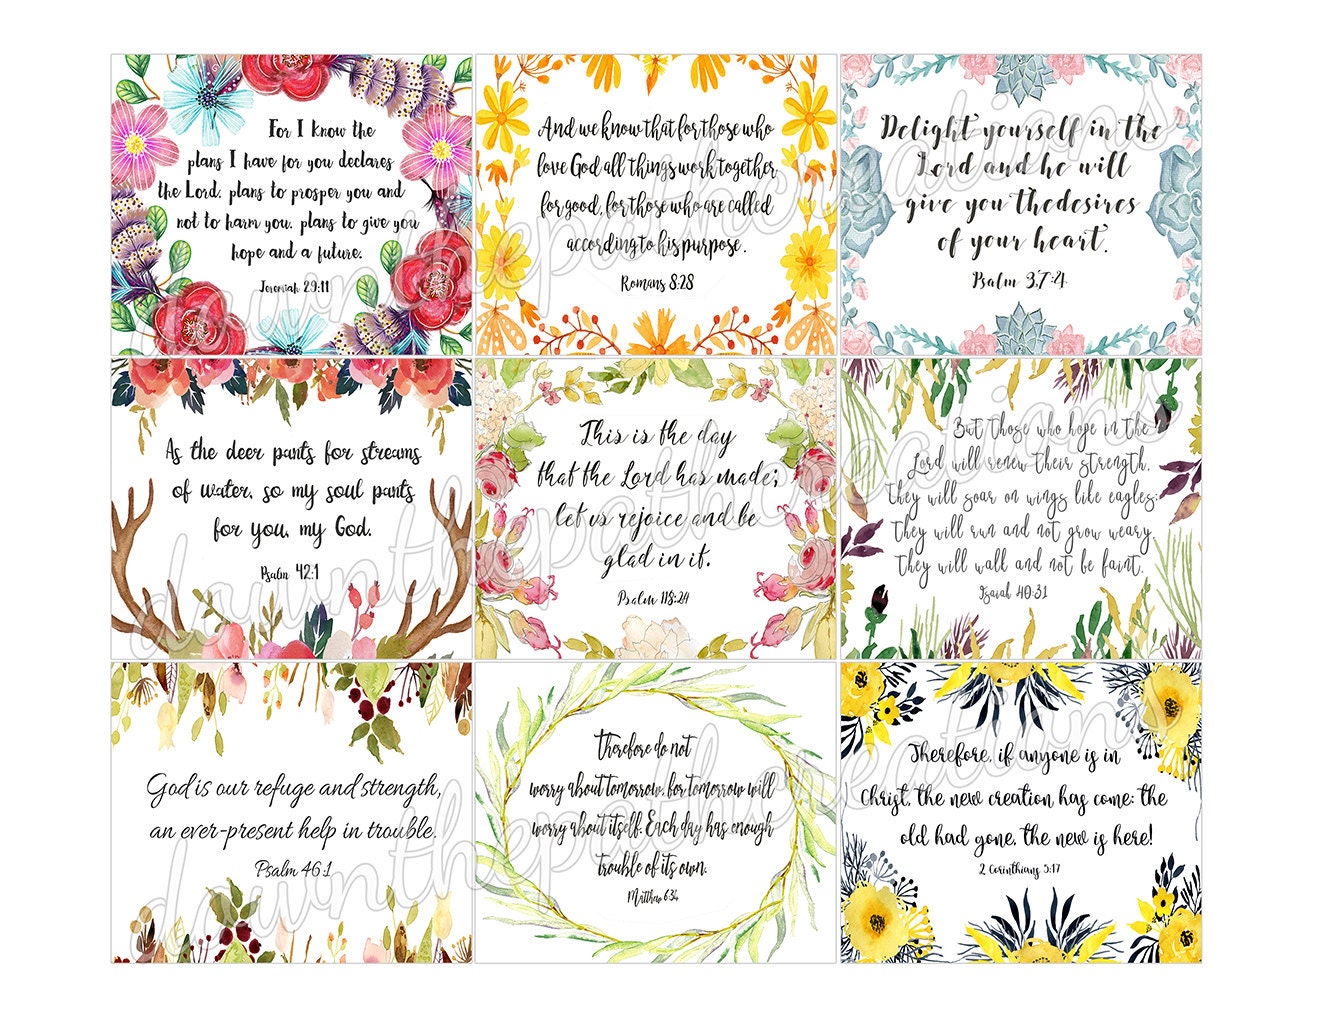 For I know the
plans I have for you declares
the Lord, plans to prosper you and
not to harm you, plans to give you
hope and a future.
Jeremiah 29:11
And we know that for those who
love God all things work together
for good, for those who are called
according to his purpose.
Romans 8:28
Delight yourself in the
Lord and he will
give you thedesires
of your heart.
Psalm 3,7:4
As the deer pants for streams
of water, so my soul pants
for you, my God.
Psalm 42:1
This is the day
that the Lord has made;
let us rejoice and be
glad in it.
Psalm 118:24
But those who hope in the
Lord will renew their strength.
They will soar on wings like eagles;
They will run and not grow weary
They will walk and not be faint.
Isaiah 40:31
God is our refuge and strength,
an ever-present help in trouble.
Psalm 46:1
Therefore do not
worry about tomorrow, for tomorrow will
worry about itself. Each day has enough
trouble of its own.
Matthew 6:34
Therefore, if anyone is in
Christ, the new creation has come: the
old had gone, the new is here!
2 Corinthians 5:17
downthepathcreations
downthepathcreations
downthepathcreations